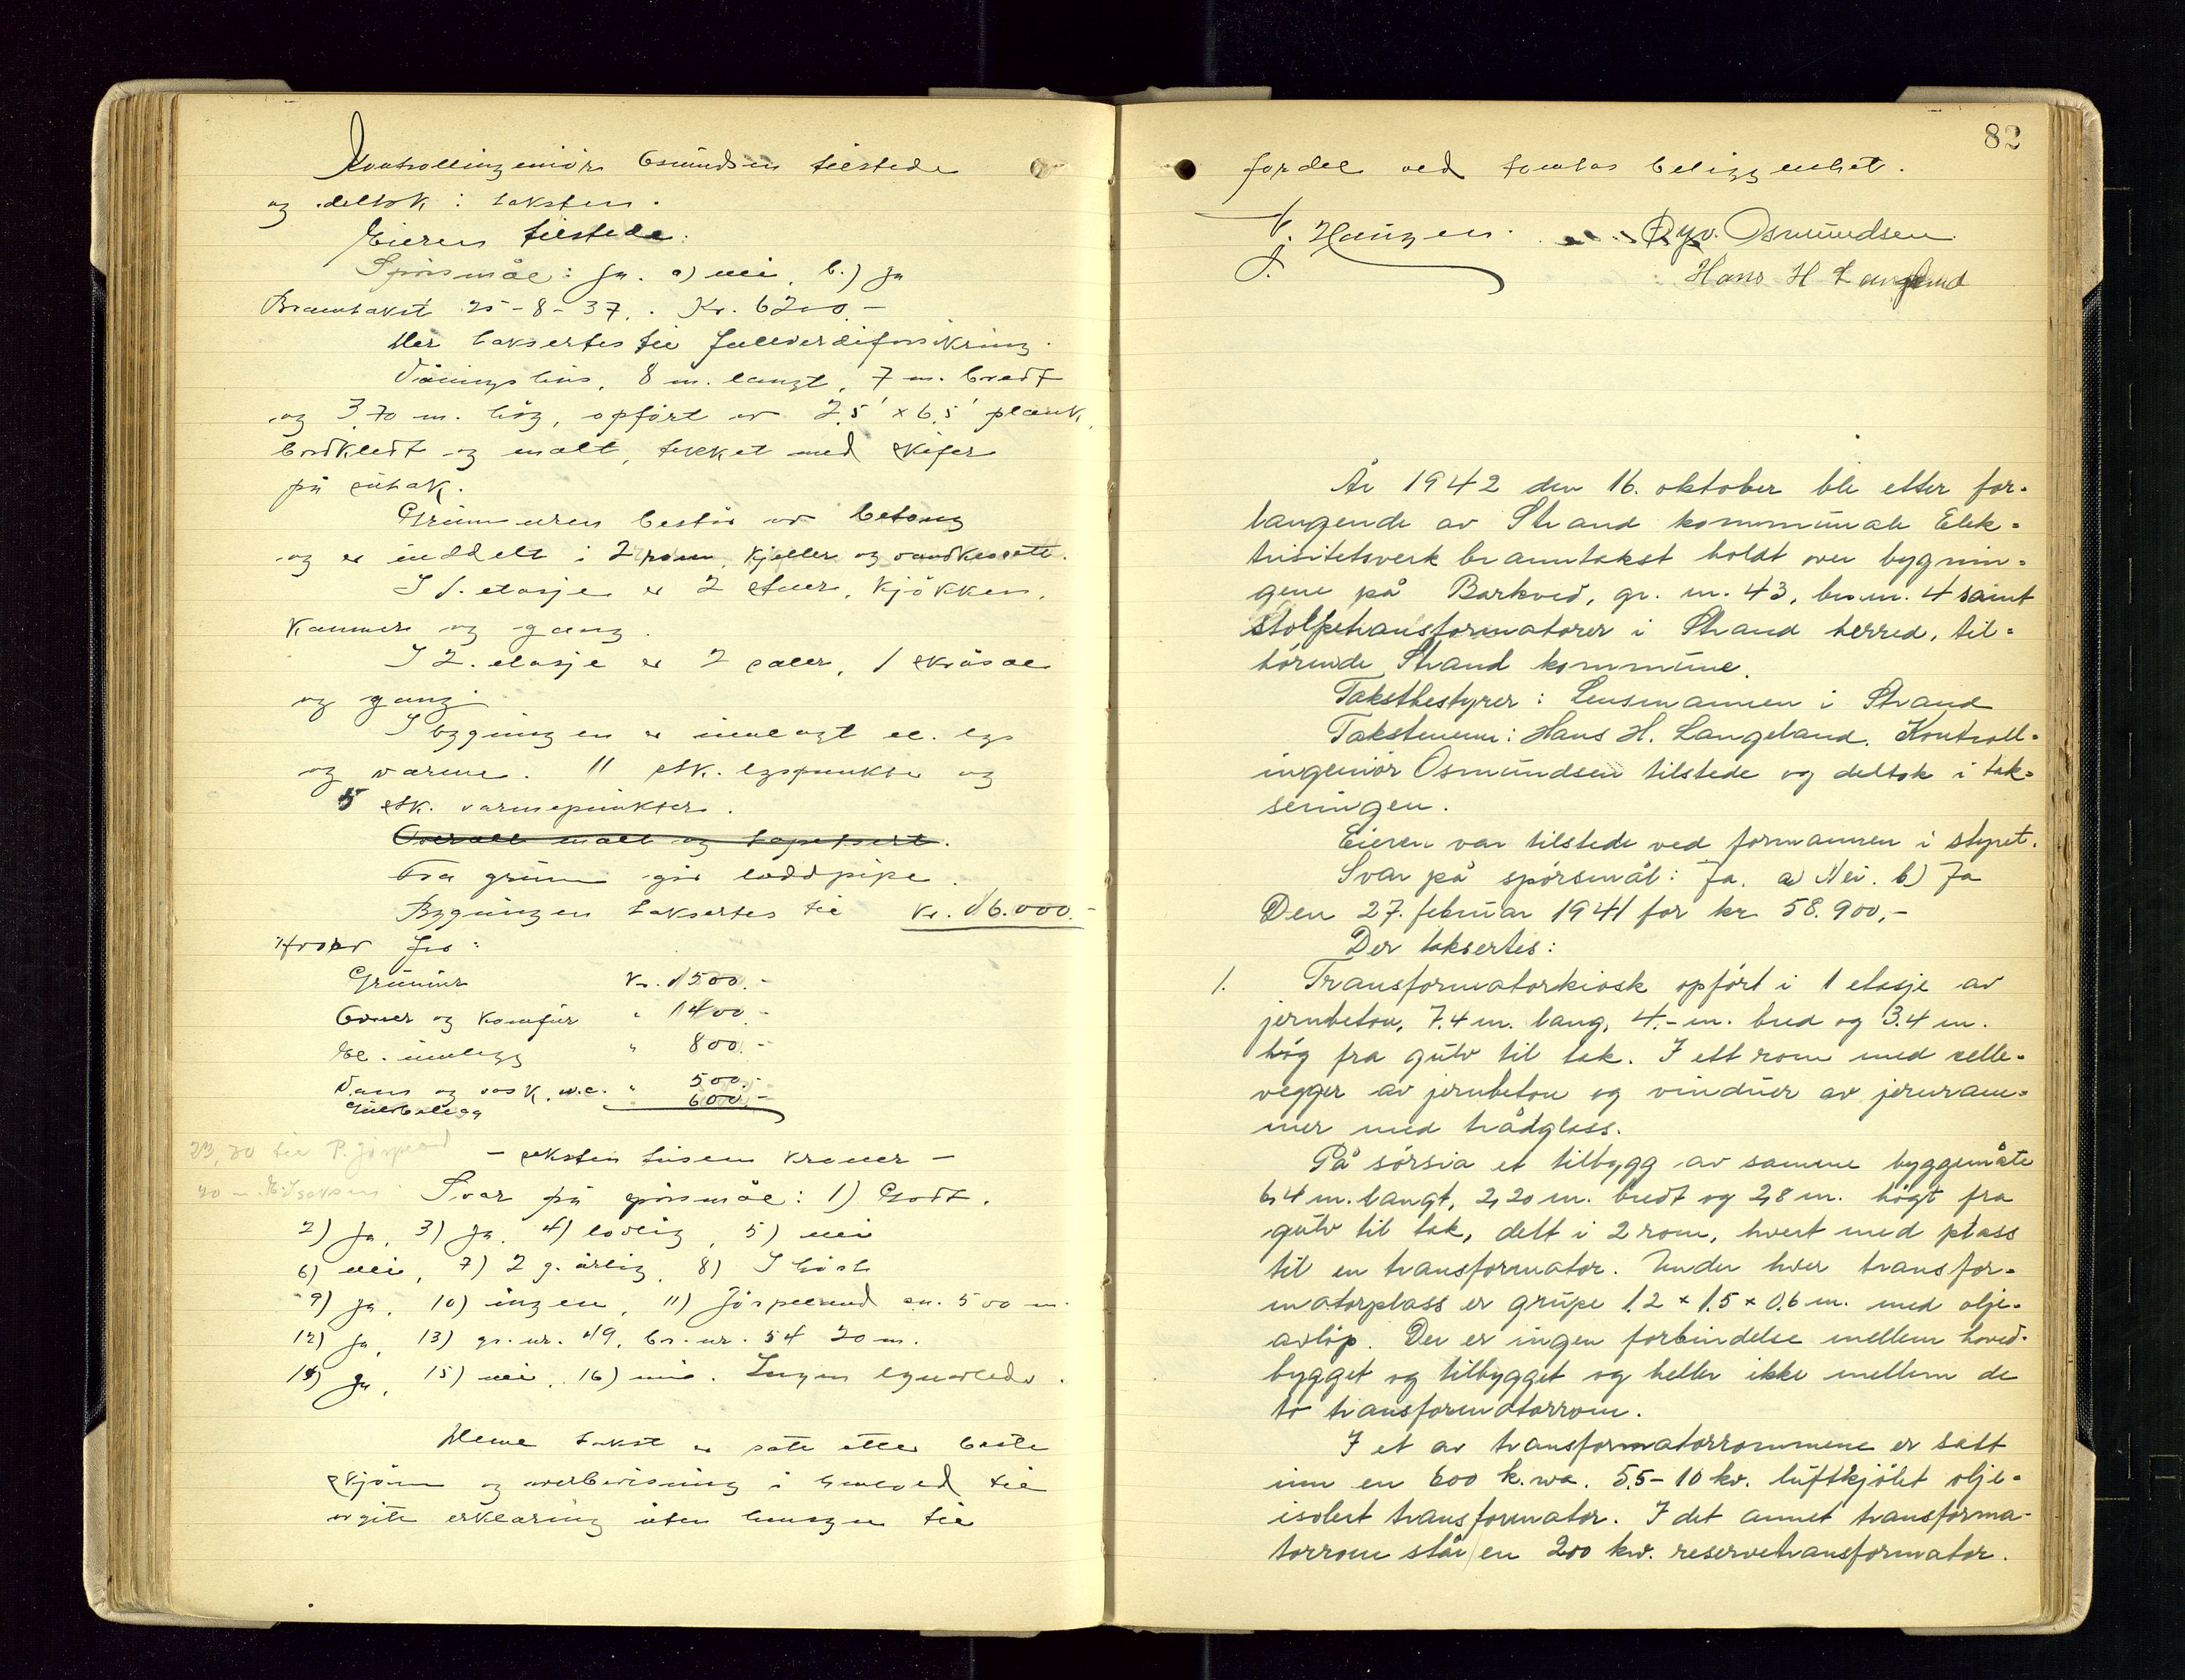 Kontrollingeniör Osmundsen tilstede
og deltok i taksten.
Eieren tilstede.
Spörsmål: Ja. a) nei, b.) Ja
Branntakst 25-8-37. Kr. 6200.-
Der taksertes til fullverdiforsikring.
Våningshus, 8 m. langt, 7 m. bredt
og 3,70 m. hög, opfört av 2,5' x 6,5' plank,
bordkledt og malt, tekket med skifer
på sutak.
Grunnuren består av betong
og er inddelt i 2 rom, kjeller og
I 1. etasje er 2 stuer, kjökken,
kammers og gang.
I 2. etasje er 2 saler, 1 skråsal
og gang.
I bygningen er innlagt el. lys
og varme. 11 stk. lyspunkter og
5 stk. varmepunkter.
Overalt malt og tapetsert.
Fra grunn går loddpipe.
Bygningen taksertes til kr. 16.000.-
Hvorav for:
Grunnur kr. 1500.-
Ovner og komfur " 1400.-
El. innlegg " 800.-
Vann og vask, w.c. " 500.-
Gulvbelegg 600.-
23,70 til P. Jörpeland
- seksten tusen kroner -
20 m. E. Isaksen
Svar på spörsmål: 1) Godt.
2) Ja, 3) Ja, 4) lovlig, 5) nei
6) nei, 7) 2 g. årlig, 8) I höst
9) Ja, 10) ingen, 11) Jörpeland ca. 500 m.
12) Ja, 13) gr. nr. 49, br. nr. 54 20 m.
14) Ja, 15) nei, 16) nei. Ingen lynavleder.
Denne takst er satt etter beste
skjönn og overbevisning i henhold til
avgitt erklæring uten hensyn til
82
fordel ved tomtas beliggenhet.
V. Haugen. Øyv. Osmundsen
Hans H Langeland
År 1942 den 16. oktober ble etter for-
langende av Strand kommunale Elek-
trisitetsverk branntakst holdt over bygnin-
gene på Barkved, gr. nr. 43, br. nr. 4 samt
stolpetransformatorer i Strand herred, til-
hörende Strand kommune.
Takstbestyrer: Lensmannen i Strand
Takstmenn: Hans H. Langeland. Kontroll-
ingeniör Osmundsen tilstede og deltok i tak-
seringen.
Eieren var tilstede ved formannen i styret.
Svar på spörsmål: Ja. a) Nei. b) Ja
Den 27. februar 1941 for kr. 58.900,-
Der taksertes:
1. Transformatorkiosk opfört i 1 etasje av
jernbeton, 7.4 m. lang, 4.- m. bred og 3.4 m.
hög fra gulv til tak. I ett rom med celle-
vegger av jernbeton og vinduer av jernram-
mer med trådglass.
På sörsia et tilbygg av samme byggemåte
6,4 m. langt, 2,20 m. bredt og 2,8 m. högt fra
gulv til tak, delt i 2 rom, hvert med plass
til en transformator. Under hver transfor-
matorplass er grupe 1.2 x 1.5 x 0.6 m. med olje-
avlöp. Der er ingen forbindelse mellem hoved-
bygget og tilbygget og heller ikke mellem de
to transformatorrom.
I et av transformatorrommene er satt
inn en 600 k.wa. 5.5 - 10 kv. luftkjölet olje-
isolert transformator. I det annet transforma-
torrom står en 200 kw. reservetransformator.